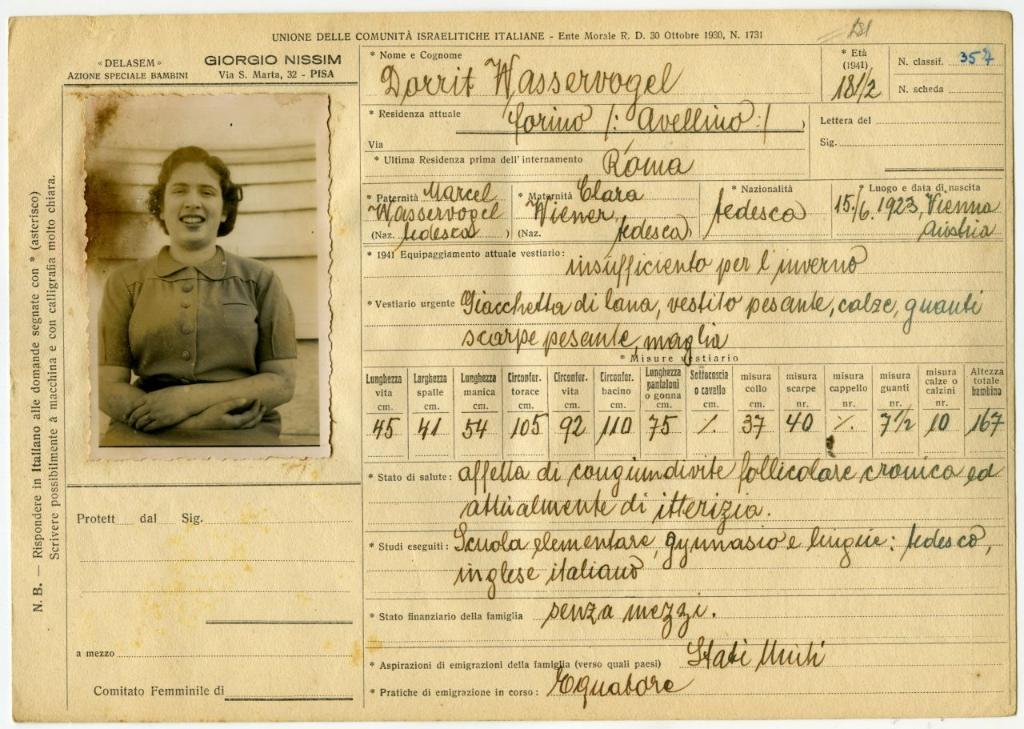 UNIONE DELLE COMUNITÀ ISRAELITICHE ITALIANE - Ente Morale R. D. 30 Ottobre 1930, N. 1731
« DELASEM »
AZIONE SPECIALE BAMBINI
GIORGIO NISSIM
Via S. Marta, 32 - PISA
N. B. — Rispondere in italiano alle domande segnate con * (asterisco)
Scrivere possibilmente a macchina e con calligrafia molto chiara.
* Nome e Cognome
Dorrit Wasservogel
* Età
(1941)
18 1/2
N. classif. 357
N. scheda
* Residenza attuale
Forino /: Avellino :/
Via
Lettera del
Sig.
* Ultima Residenza prima dell'internamento Roma
* Paternità Marcel
Wasservogel
(Naz. tedesca )
* Maternità Clara
Wiener,
(Naz. tedesca )
* Nazionalità
tedesca
* Luogo e data di nascita
15./6. 1923, Vienna
Austria
* 1941 Equipaggiamento attuale vestiario: insufficiento per l'inverno
* Vestiario urgente Giacchetta di lana, vestito pesante, calze, guanti
scarpe pesante, maglia
* Misure vestiario
Lunghezza vita cm. 45
Larghezza spalle cm. 41
Lunghezza manica cm. 54
Circonfer. torace cm. 105
Circonfer. vita cm. 92
Circonfer. bacino cm. 110
Lunghezza pantaloni o gonna cm. 75
Sottocoscia o cavallo cm. %
misura collo cm. 37
misura scarpe nr. 40
misura cappello nr. %
misura guanti nr. 7 1/2
misura calze o calzini nr. 10
Altezza totale bambino cm. 167
* Stato di salute: affetta di congiundivite follicolare cronica ed
attualmente di itterizia.
* Studi eseguiti: Scuola elementare, gymnasio e lingue: tedesco,
inglese italiano
* Stato finanziario della famiglia senza mezzi.
* Aspirazioni di emigrazioni della famiglia (verso quali paesi) Stati Uniti
* Pratiche di emigrazione in corso: Equatore
Protett dal Sig.
a mezzo
Comitato Femminile di